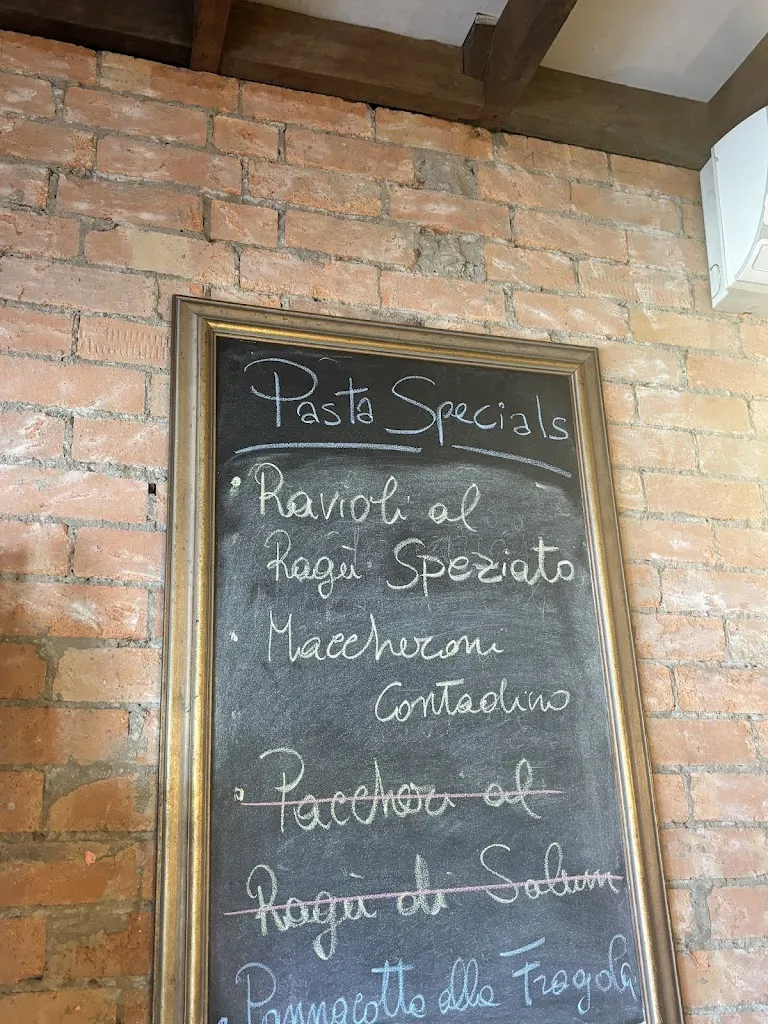 Pasta Specials
• Ravioli al
Ragù Speziato
• Maccheroni
Contadino
• Paccheri al
Ragù di Salumi
Pannacotta alla Fragola